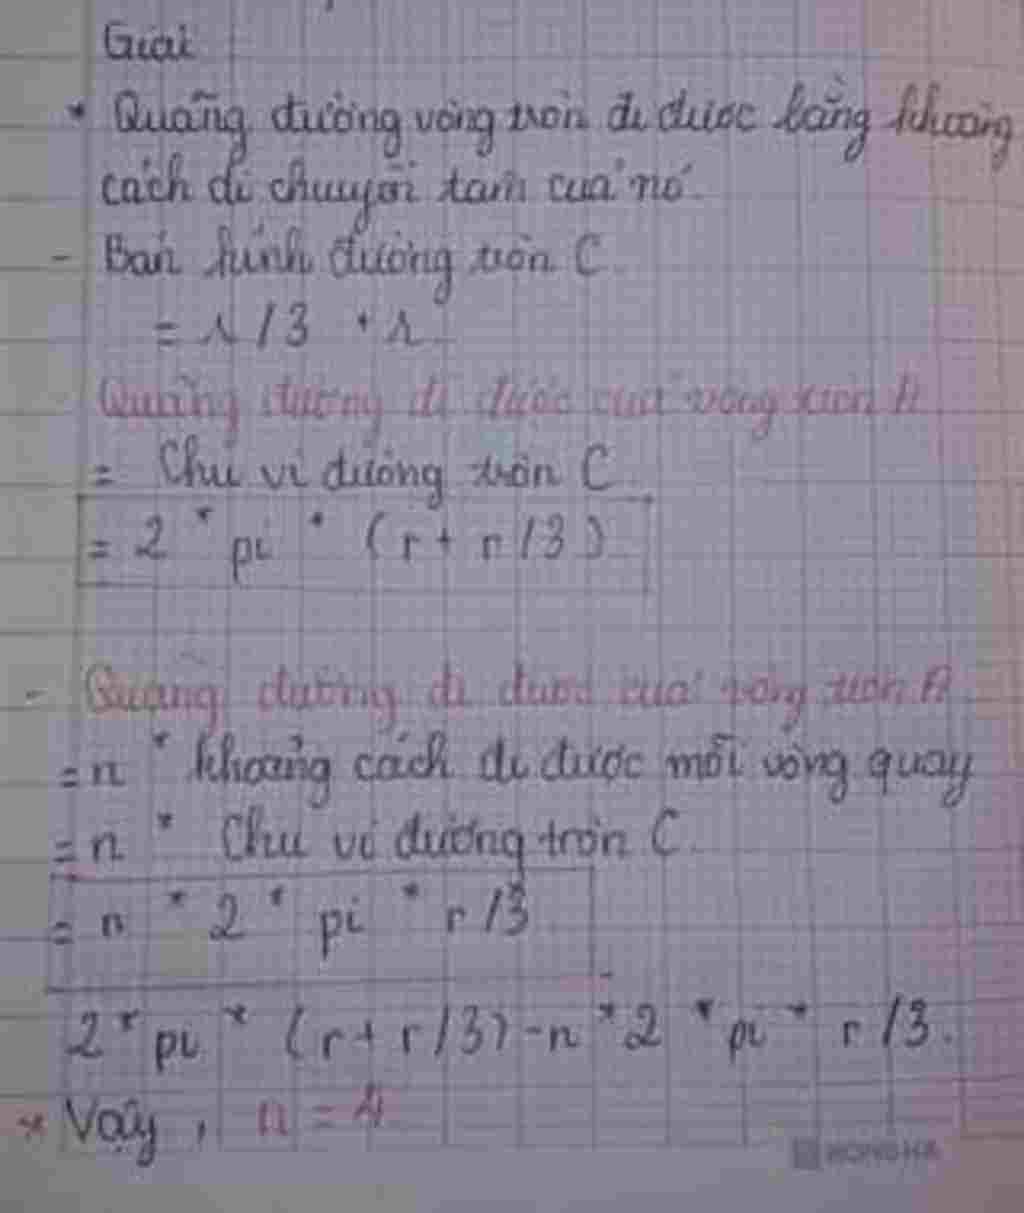 Giải
* Quãng đường vòng tròn đi được bằng khoảng
cách di chuyển tâm của nó.
- Bán kính đường tròn C
= r/3 + r
Quãng đường đi được của vòng tròn A
= Chu vi đường tròn C
= 2 * pi * (r + r/3)
- Quãng đường đi được của vòng tròn A
= n * khoảng cách đi được mỗi vòng quay
= n * Chu vi đường tròn C
= n * 2 * pi * r/3
2 * pi * (r + r/3) - n * 2 * pi * r/3.
* Vậy, n = 4
HONG HA